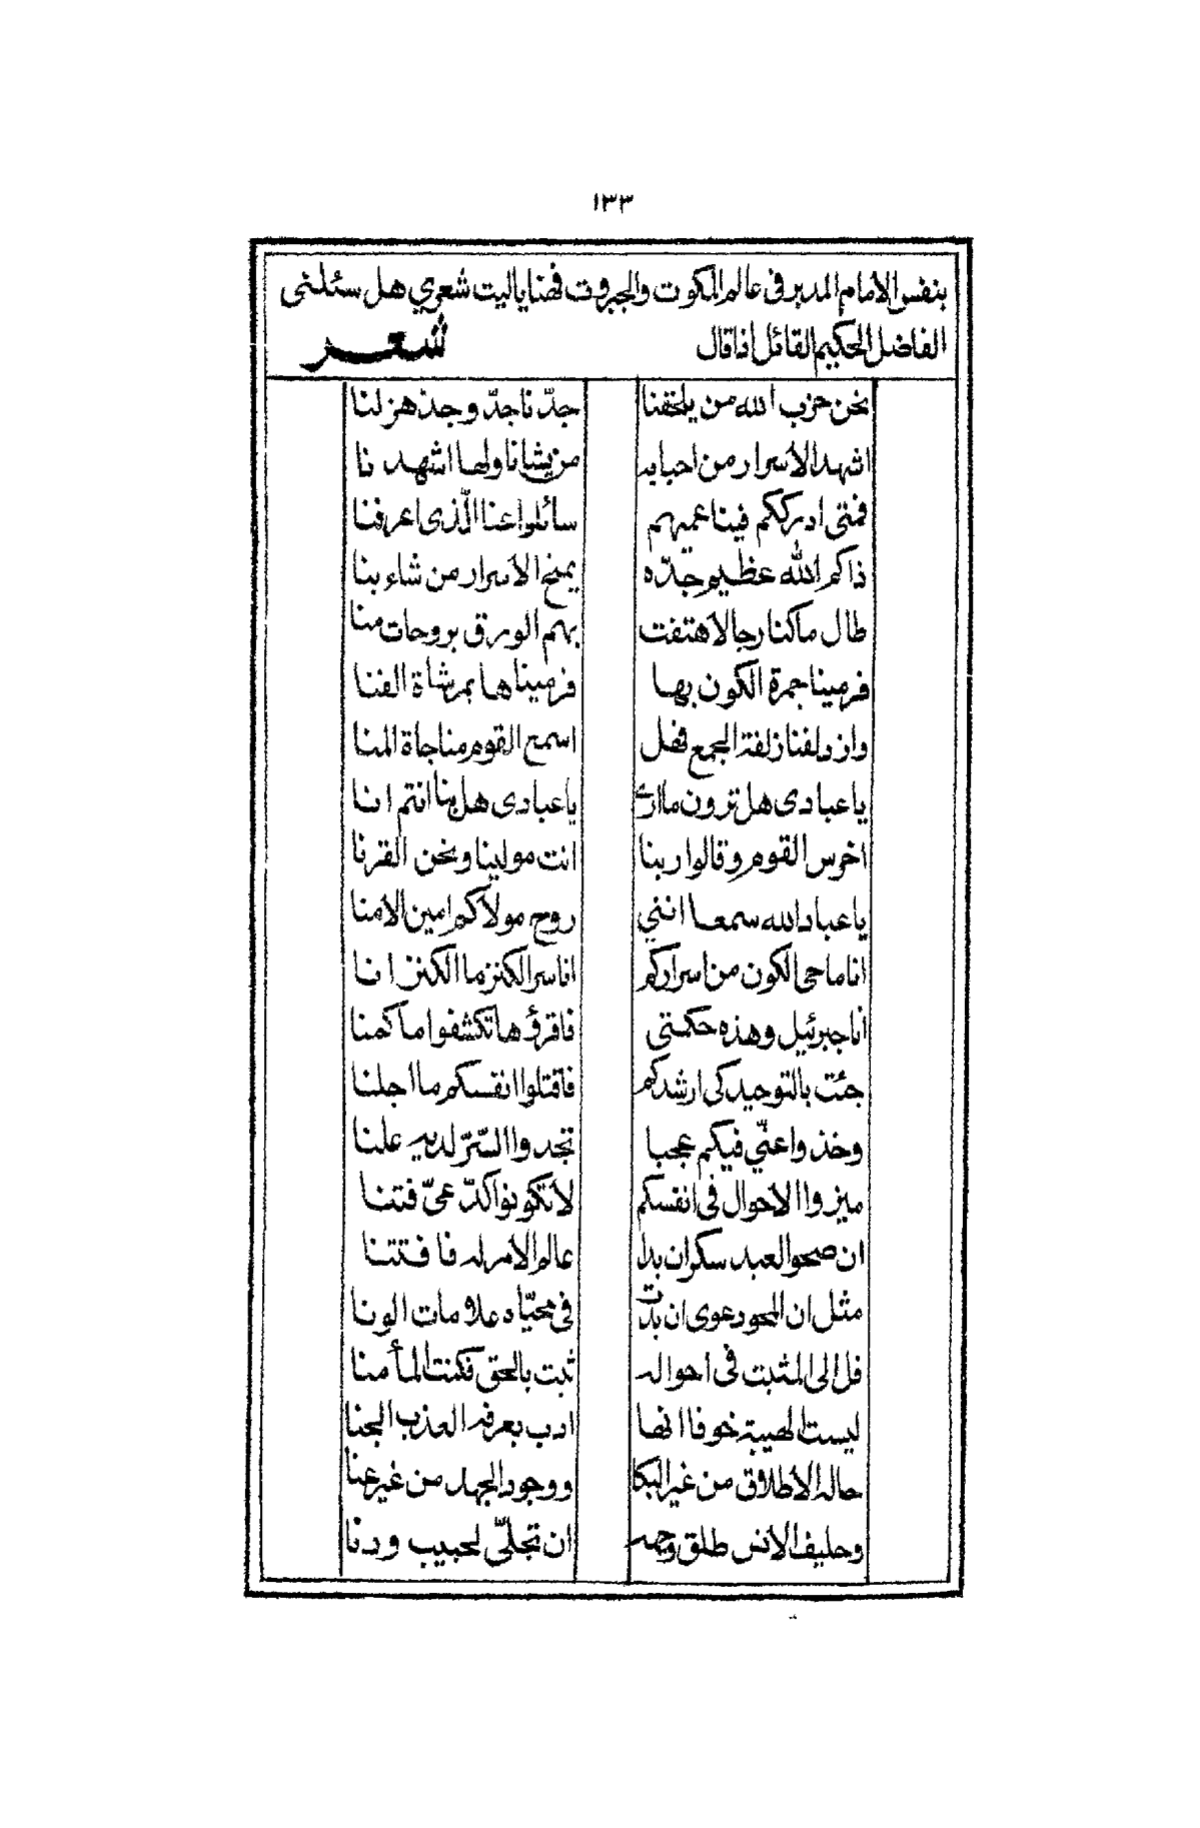 ١٣٣
بنفس الامام المدبر فی عالم الملکوت والجبروت فهنا یالیت شعري هل سئلنی
الفاضل الحکیم القائل اذا قال شعر
نحن حزب الله من یلحقنا جدّنا جدّ وجد هزلنا
اشهد الاسرار من احبابه من یشا ناولها اشهدنا
فمتی ادرککم فینا عمیهم سائلوا عنا الّذی اعرفنا
ذاکم الله عظیم جدّه یمنح الاسرار من شاء بنا
طال ما کنا رجالا هتفت بهم الورق بروحات منا
فرمینا جمرة الکون بها فرمیناها بمرشاة الفنا
وازدلفنا زلفة الجمع فهل اسمع القوم مناجاة المنا
یا عبادی هل ترون ما اری یا عبادی هل بنا انتم انا
اخرس القوم وقالوا ربنا انت مولینا ونحن القرنا
یا عباد الله سمعا اننی روح مولاکم امین الامنا
انا ماحی الکون من اسرارکم انا سر الکنز ما الکنز انا
انا جبرئیل وهذه حکمتی فاقرؤها تکشفوا ما کمنا
جئت بالتوحید کی ارشدکم فاقتلوا انفسکم ما اجلنا
وخذوا عنّي فیکم عجبا تجدوا السّرّ لدیه علنا
میزوا الاحوال فی انفسکم لا تکونوا کدّعیّ فتنا
ان صحو العبد سکران بدا عالم الامر له فافتتنا
مثل ان المحو دعوی ان بدت فی محیّاه علامات الونا
قل الی المثبت فی احواله ثبت بالحق فکنت المأمنا
لیست الهیبة خوفا انها ادب یعرفه العذب الجنا
حالة الاطلاق من غیر البکا ووجود الجهد من غیر عنا
وحلیف الانس طلق وجهه ان تجلّی لحبیب ودنا